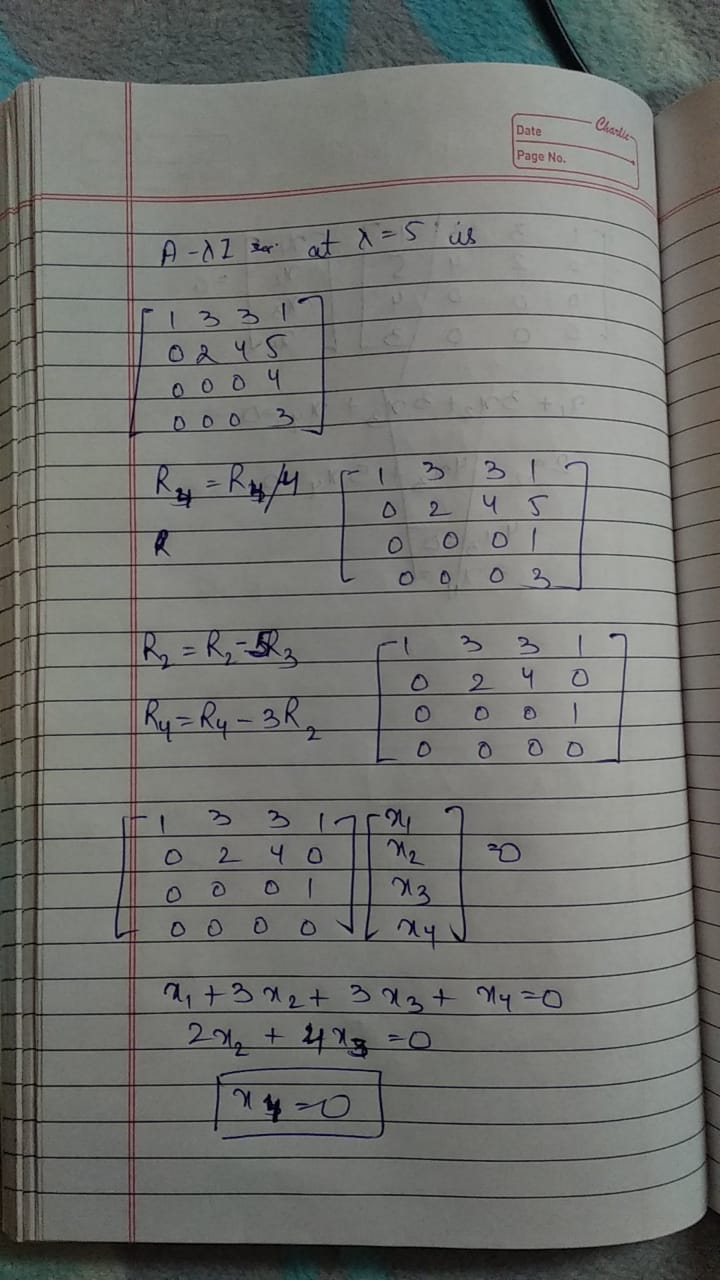 Date Charlie
Page No.
A - λI at λ = 5 is
1 3 3 1
0 2 4 5
0 0 0 4
0 0 0 3
R4 = R4/4
1 3 3 1
0 2 4 5
0 0 0 1
0 0 0 3
R
R2 = R2 - 5R3
R4 = R4 - 3R2
1 3 3 1
0 2 4 0
0 0 0 1
0 0 0 0
1 3 3 1 x1
0 2 4 0 x2 =0
0 0 0 1 x3
0 0 0 0 x4
x1 + 3x2 + 3x3 + x4 = 0
2x2 + 4x3 = 0
x4 = 0